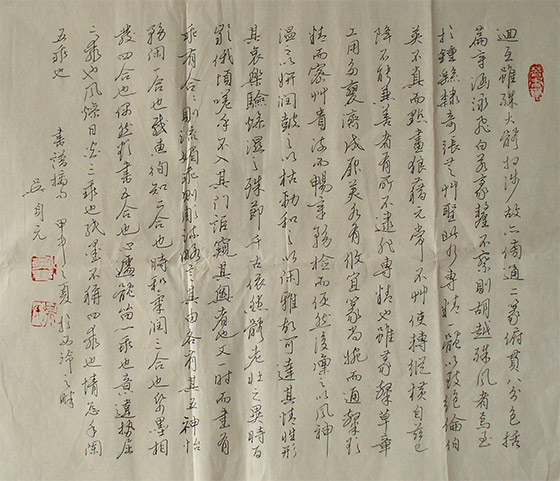 迴互雖殊大體相涉故亦傍通二篆俯貫八分包括
篇章涵泳飛白若毫釐不察則胡越殊風者焉至
於鍾繇隸奇張芝草聖此乃專精一體以致絕倫伯
英不真而點畫狼藉元常不草使轉縱橫自茲已
降不能兼善者有所不逮非專精也雖篆隸草章
工用多變濟成厥美各有攸宜篆尚婉而通隸欲
精而密草貴流而暢章務檢而便然後凜之以風神
溫之以妍潤鼓之以枯勁和之以閑雅故可達其情性形
其哀樂驗燥濕之殊節千古依然體老壯之異時百
齡俄頃嗟乎不入其門詎窺其奧者也又一時而書有
乖有合合則流媚乖則彫疎略言其由各有其五神怡
務閑一合也感惠徇知二合也時和氣潤三合也紙墨相
發四合也偶然欲書五合也心遽體留一乖也意違勢屈
二乖也風燥日炎三乖也紙墨不稱四乖也情怠手闌
五乖也 書譜摘句 甲申之夏於西泠之畔